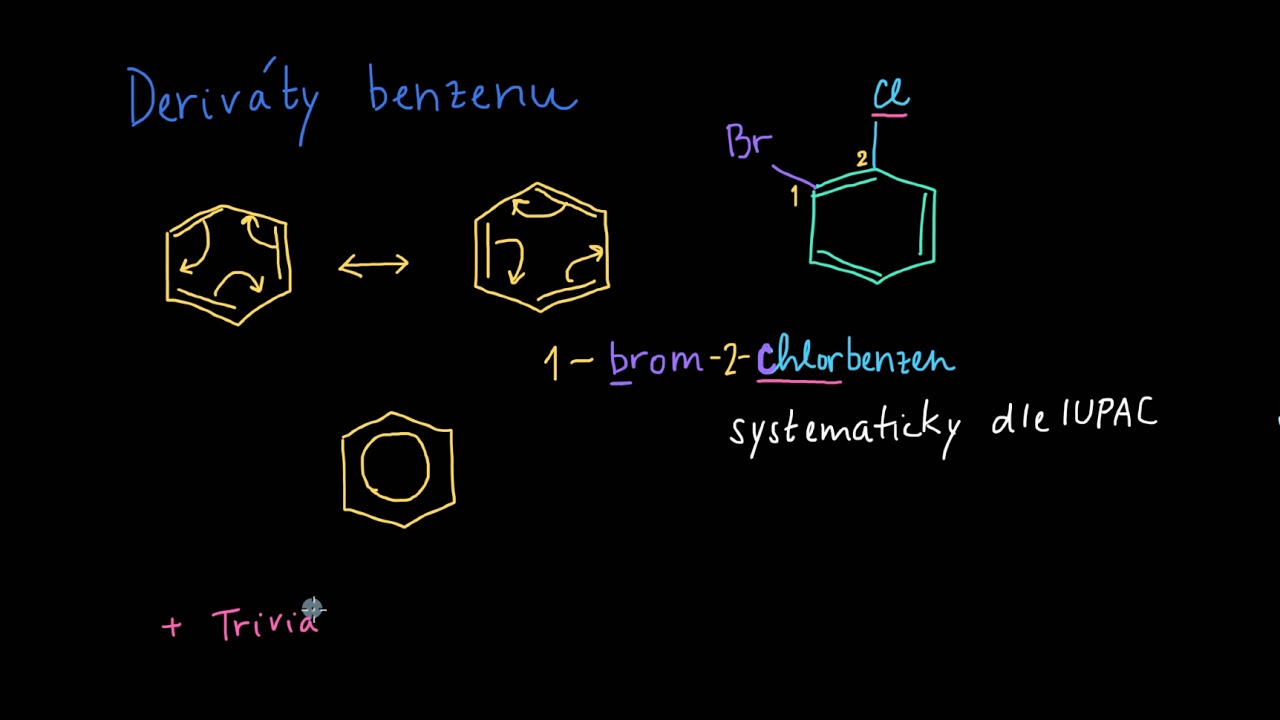 Deriváty benzenu
Cl
Br
2
1
1-brom-2-chlorbenzen
systematicky dle IUPAC
+ Trivia